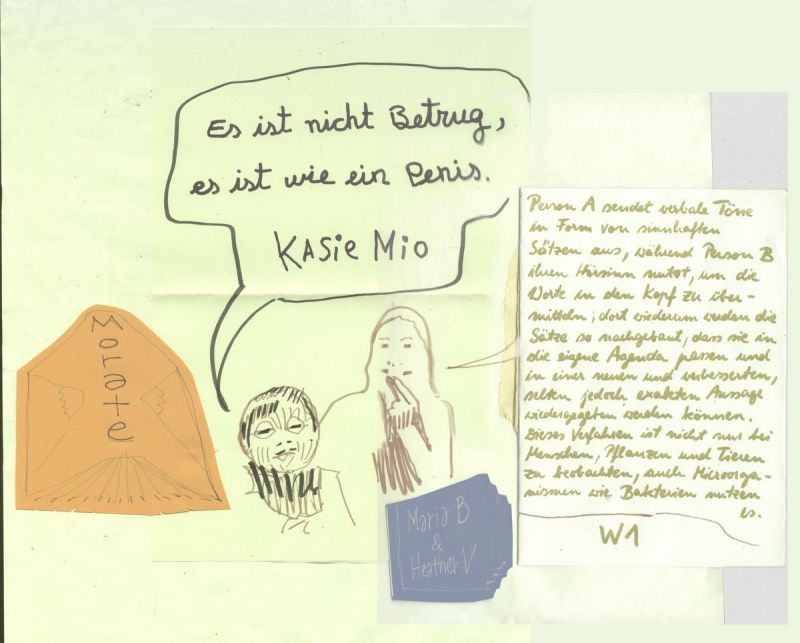 Es ist nicht Betrug,
es ist wie ein Penis.
KASie Mio
Morate
Maria B
&
Heather V
Person A sendet verbale Töne
in Form von sinnhaften
Sätzen aus, während Person B
ihren Hörsinn nutzt, um die
Worte in den Kopf zu über-
mitteln; dort wiederum werden die
Sätze so nachgebaut, dass sie in
die eigene Agenda passen und
in einer neuen und verbesserten,
selten jedoch exakten Aussage
wiedergegeben werden können.
Dieses Verfahren ist nicht nur bei
Menschen, Pflanzen und Tieren
zu beobachten, auch Microorga-
nismen wie Bakterien nutzen
es.
W1